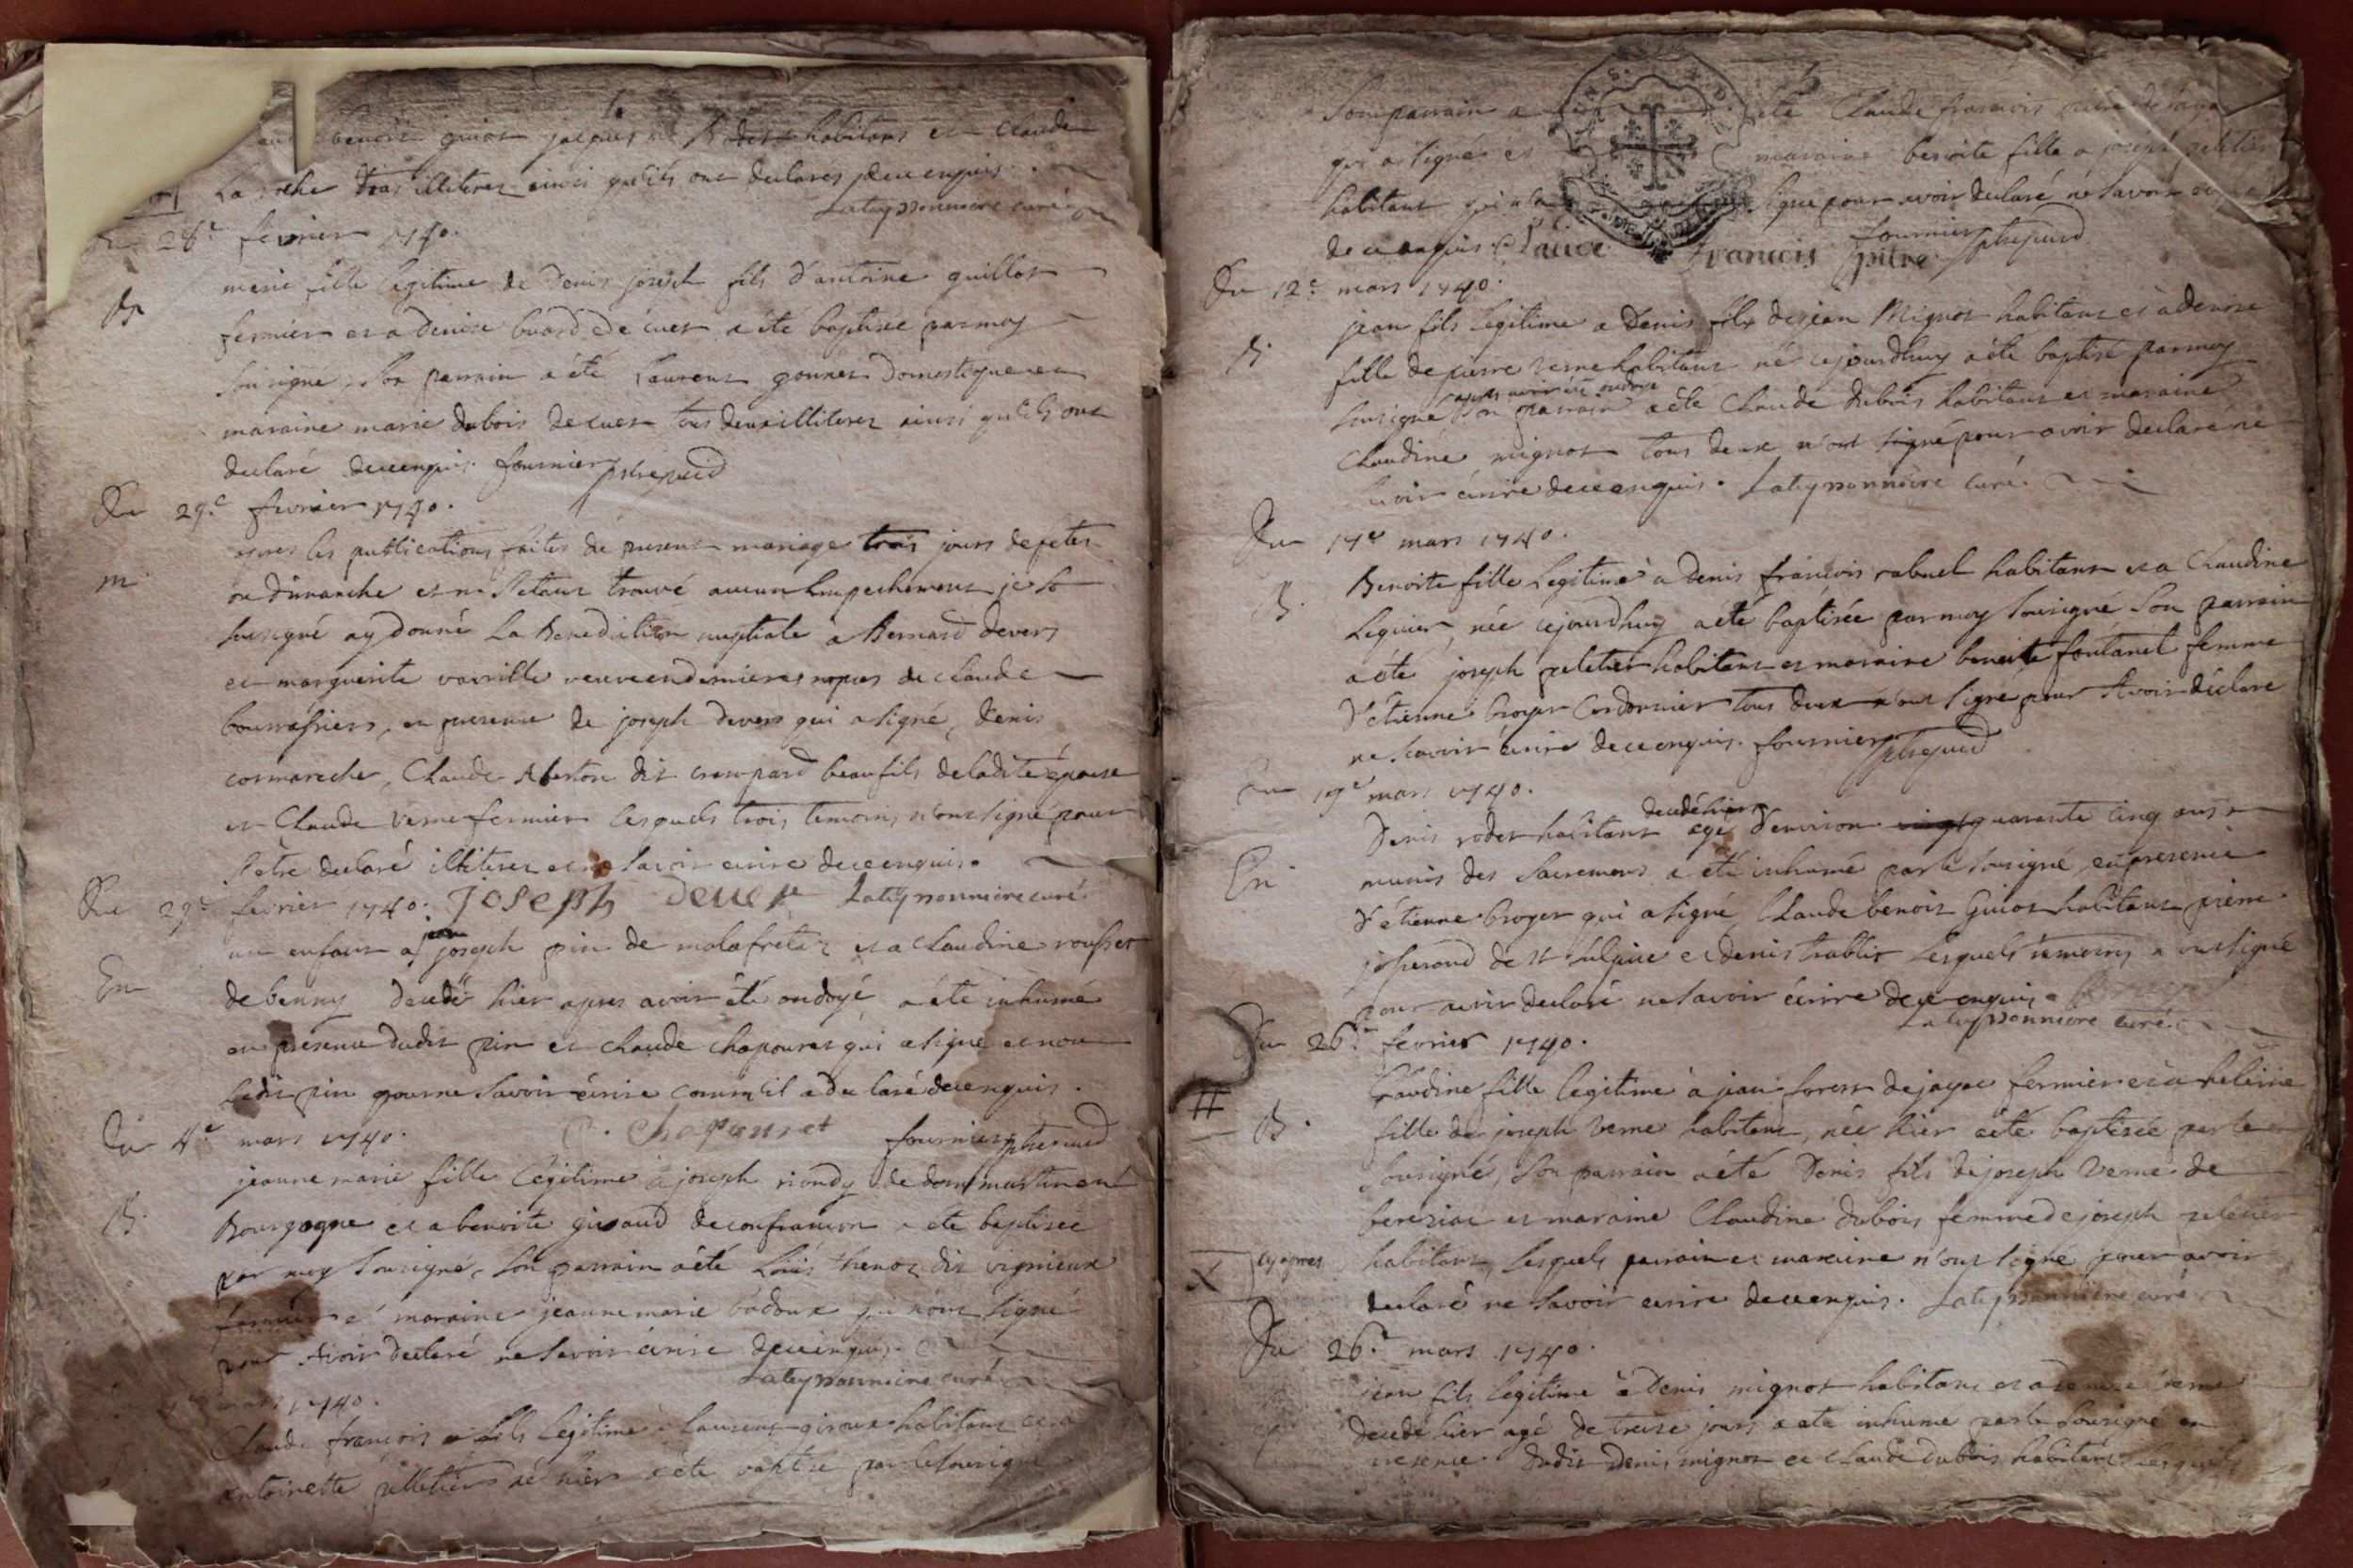 benoit guiot jacques habitans et Claude
La roche tous illiteres ainsi qu'ils ont declarés de ce enquis.
Lateyssonniere curé
28e fevrier 1740.
B
marie fille legitime de Denis joseph fils d'antoine guillot
fermier et a Denise buard de cuet a été baptisée par moy
sousigné, son parrain a été Laurent gonnet Domestique et
maraine marie dubois de cuet tous deux illiteres ainsi qu'ils ont
declaré de ce enquis. fournier
Du 29e fevrier 1740.
m
apres les publications faites de present mariage trois jours de fetes
ou dimanche et ne s'etant trouvé aucun Empechement je so
sousigné ay donné La Benediction nuptiale a Bernard Devers
et marguerite vavrille veuve en dernieres nopces de Claude
en presence de joseph Devers qui a signé, Denis
cormareche, Claude dit beaufils de ladite épouse
et Claude Verne fermier lesquels trois temoins n'ont signé pour
s'etre declaré illiteres et ne savoir ecrire de ce enquis.
Du 29e fevrier 1740. JOSEPH Dever Lateyssonniere curé
En
un enfant a jean joseph pin de malafretaz et a Claudine rousset
de benny decedé hier apres avoir été ondoyé a été inhumé
en presence dudit pin et Claude Chapouret qui a signé et non
Ledit pin pour ne savoir écrire comm'il a declaré de ce enquis.
Du 4e mars 1740. C. chapouret fournier
B.
jeanne marie fille legitime a joseph riondy de dommartin en
Bourgogne et a benoite giraud de confrançon a été baptisée
par moy sousigné, son parrain a été Loüis thenoz dit vignieux
fermier et maraine jeanne marie badoux qui n'ont signé
pour avoir declaré ne savoir ecrire de ce enquis.
Lateyssonniere curé
1740.
Claude françois fils legitime a Laurent giroux habitant et a
antoinette pelletier né hier a été baptisé par le sousigné
Son parrain a été Claude françois
qui a signé et maraine benoite fille a joseph peletier
habitant qui n'a signé pour avoir declaré ne savoir
de ce enquis. Claude francois pitre fournier
Du 12e mars 1740.
B.
jean fils legitime a Denis fils de jean Mignot habitant et a denise
fille de pierre verne habitant né cejourdhuy a été baptisé par moy
apres avoir été ondoyé
sousigné son parrain a été Claude dubois habitant et maraine
Claudine mignot tous deux n'ont signé pour avoir declaré ne
savoir écrire de ce enquis. Lateyssonniere curé.
Du 17e mars 1740.
B.
Benoite fille Legitime a Denis françois rabuel habitant et a Claudine
Leguier, née cejourdhuy a été baptisée par moy sousigné son parrain
a été joseph peletier habitant et maraine benoite fontanel femme
d'etienne broyer Cordonnier tous deux n'ont signé pour avoir declaré
ne savoir écrire de ce enquis. fournier
19e mars 1740.
En
decedé hier
Denis rodet habitant agé d'environ quarante cinq ans
munis des sacremens a été inhumé par le sousigné, en presence
d'étienne broyer qui a signé, Claude benoit Guiot habitant pierre
josserand de st sulpice et denis trablit Lesquels temoins n'ont signé
pour avoir declaré ne savoir écrire de ce enquis.
Lateyssonniere curé
Du 26e fevrier 1740.
#
B.
Claudine fille legitime a jean forest de jayac fermier et a helene
fille de joseph Verne habitant, née hier a été baptisée par le
sousigné, son parrain a été Denis fils de joseph Verne de
bereziac et maraine Claudine dubois femme de joseph peletier
habitant, lesquels parrain et maraine n'ont signé pour avoir
declaré ne savoir ecrire de ce enquis. Lateyssonniere curé
Du 26e mars 1740.
jean fils legitime à Denis mignot habitant et a denise verne
decedé hier agé de treize jours a été inhumé par le sousigné en
presence dudit Denis mignot et Claude dubois habitans lesquels